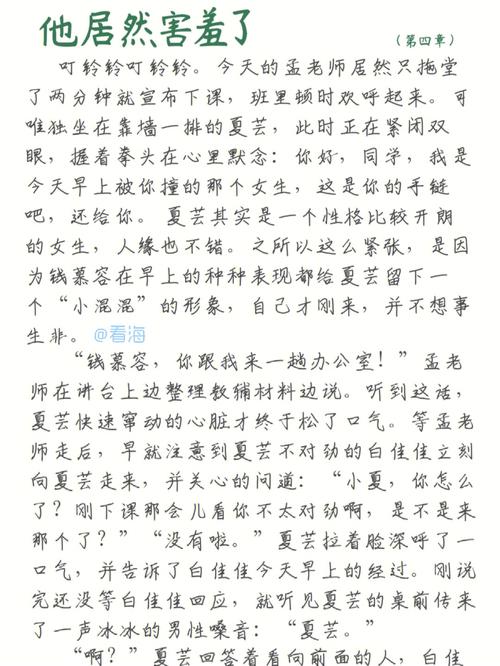 他居然害羞了
（第四章）
叮铃铃叮铃铃。今天的孟老师居然只拖堂
了两分钟就宣布下课，班里顿时欢呼起来。可
唯独坐在靠墙一排的夏芸，此时正在紧闭双
眼，握着拳头在心里默念：你好，同学，我是
今天早上被你撞的那个女生，这是你的手链
吧，还给你。 夏芸其实是一个性格比较开朗
的女生，人缘也不错。之所以这么紧张，是因
为钱慕容在早上的种种表现都给夏芸留下一
个“小混混”的形象，自己才刚来，并不想事
生非。 @看海
“钱慕容，你跟我来一趟办公室！”孟老
师在讲台上边整理教辅材料边说。听到这话，
夏芸快速窜动的心脏才终于松了口气。等孟老
师走后，早就注意到夏芸不对劲的白佳佳立刻
向夏芸走来，并关心的问道：“小夏，你怎么
了？刚下课那会儿看你不太对劲啊，是不是来
那个了？”“没有啦。”夏芸拉着脸深呼了一
口气，并告诉了白佳佳今天早上的经过。刚说
完还没等白佳佳回应，就听见夏芸的桌前传来
了一声冰冰的男性嗓音：“夏芸。”
“啊？”夏芸回答着看向前面的人，白佳